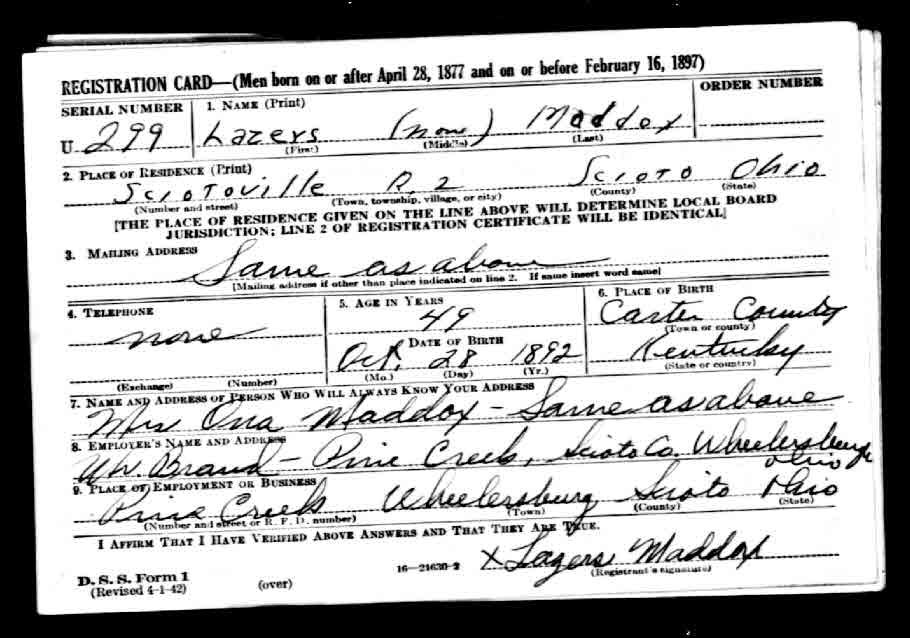 REGISTRATION CARD—(Men born on or after April 28, 1877 and on or before February 16, 1897)
SERIAL NUMBER 1. NAME (Print) ORDER NUMBER
U 299 Lazers (none) Maddox
(First) (Middle) (Last)
2. PLACE OF RESIDENCE (Print)
Sciotoville R. 2 Scioto Ohio
(Number and street) (Town, township, village, or city) (County) (State)
[THE PLACE OF RESIDENCE GIVEN ON THE LINE ABOVE WILL DETERMINE LOCAL BOARD
JURISDICTION; LINE 2 OF REGISTRATION CERTIFICATE WILL BE IDENTICAL]
3. MAILING ADDRESS
Same as above
[Mailing address if other than place indicated on line 2. If same insert word same]
4. TELEPHONE 5. AGE IN YEARS 6. PLACE OF BIRTH
none 49 Carter County
(Town or county)
DATE OF BIRTH
Oct. 28 1892 Kentucky
(Exchange) (Number) (Mo.) (Day) (Yr.) (State or country)
7. NAME AND ADDRESS OF PERSON WHO WILL ALWAYS KNOW YOUR ADDRESS
Mrs Ona Maddox - Same as above
8. EMPLOYER'S NAME AND ADDRESS
Brand - Pine Creek, Scioto Co. Wheelersburg
Ohio
9. PLACE OF EMPLOYMENT OR BUSINESS
Pine Creek Wheelersburg Scioto Ohio
(Number and street or R. F. D. number) (Town) (County) (State)
I AFFIRM THAT I HAVE VERIFIED ABOVE ANSWERS AND THAT THEY ARE TRUE.
X Lazers Maddox
D. S. S. Form 1 16—21630-2 (Registrant's signature)
(Revised 4-1-42) (over)